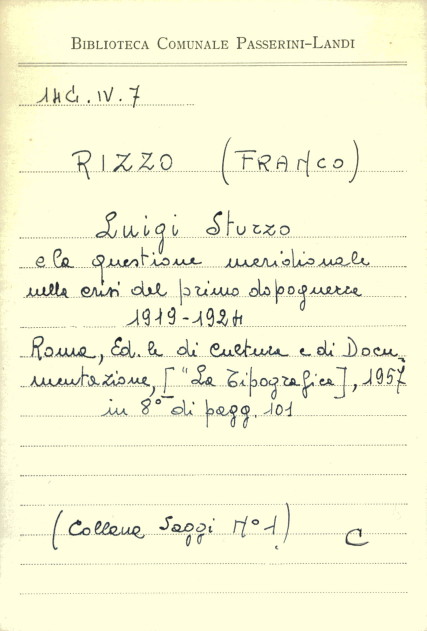 BIBLIOTECA COMUNALE PASSERINI-LANDI
1HG.IV.7
RIZZO (FRANCO)
Luigi Sturzo
e la questione meridionale
nella crisi del primo dopoguerra
1919-1924
Roma, Ed. le di Cultura e di Docu-
mentazione, ["La Tipografica], 1957
in 8° di pagg. 101
(Collana Saggi N° 1)
C